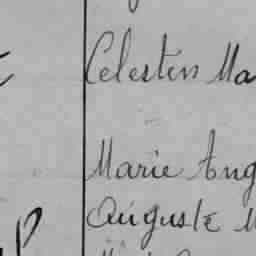 Celestin Ma
Marie Ang
Auguste M